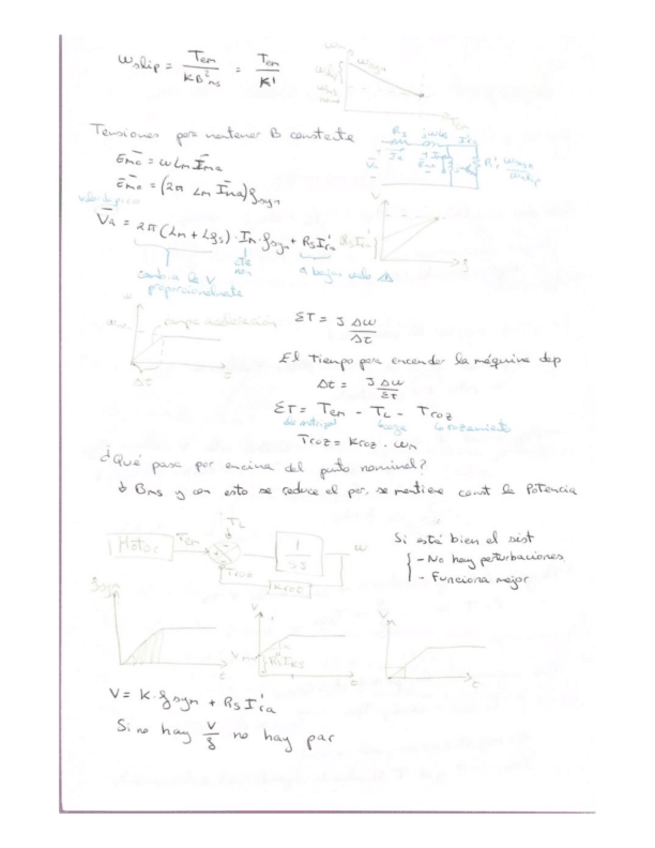 ωslip = Tem / KB²ms = Tem / K'
ωsyn
Tem
Tensiones para mantener B constante
Rs jωLls I'ra
Ema = ωLm Ima
Ema = (2π Lm Ima) fsyn
Va = 2π (Lm + Lls) · Im · fsyn + Rs I'ra
Rs I'ra
f
cte
cambia la V
proporcionalmente
a bajas vado ⚠
rampa aceleración
Δt
t
ΣT = J Δω / Δt
El tiempo para encender la máquina dep
Δt = J Δω / ΣT
ΣT = Tem - TL - Troz
carga rozamiento
Troz = Kroz · ωm
¿Qué pasa por encima del punto nominal?
↓ Bms y con esto se reduce el par, se mantiene const la Potencia
TL
Motor Tem 1 / SJ ω
Troz
Kroz
Si está bien el sist
- No hay perturbaciones
- Funciona mejor
fsyn
t
V
t
V
t
V = K · fsyn + Rs I'ra
Si no hay V/f no hay par